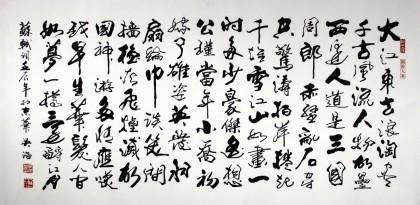 大江東去浪淘盡
千古風流人物故壘
西邊人道是三國
周郎赤壁亂石穿
空驚濤拍岸捲起
千堆雪江山如畫一
時多少豪傑遙想
公瑾當年小喬初
嫁了雄姿英發羽
扇綸巾談笑間
檣櫓灰飛煙滅故
國神遊多情應笑
我早生華髮人間
如夢一樽還酹江月
蘇軾詞